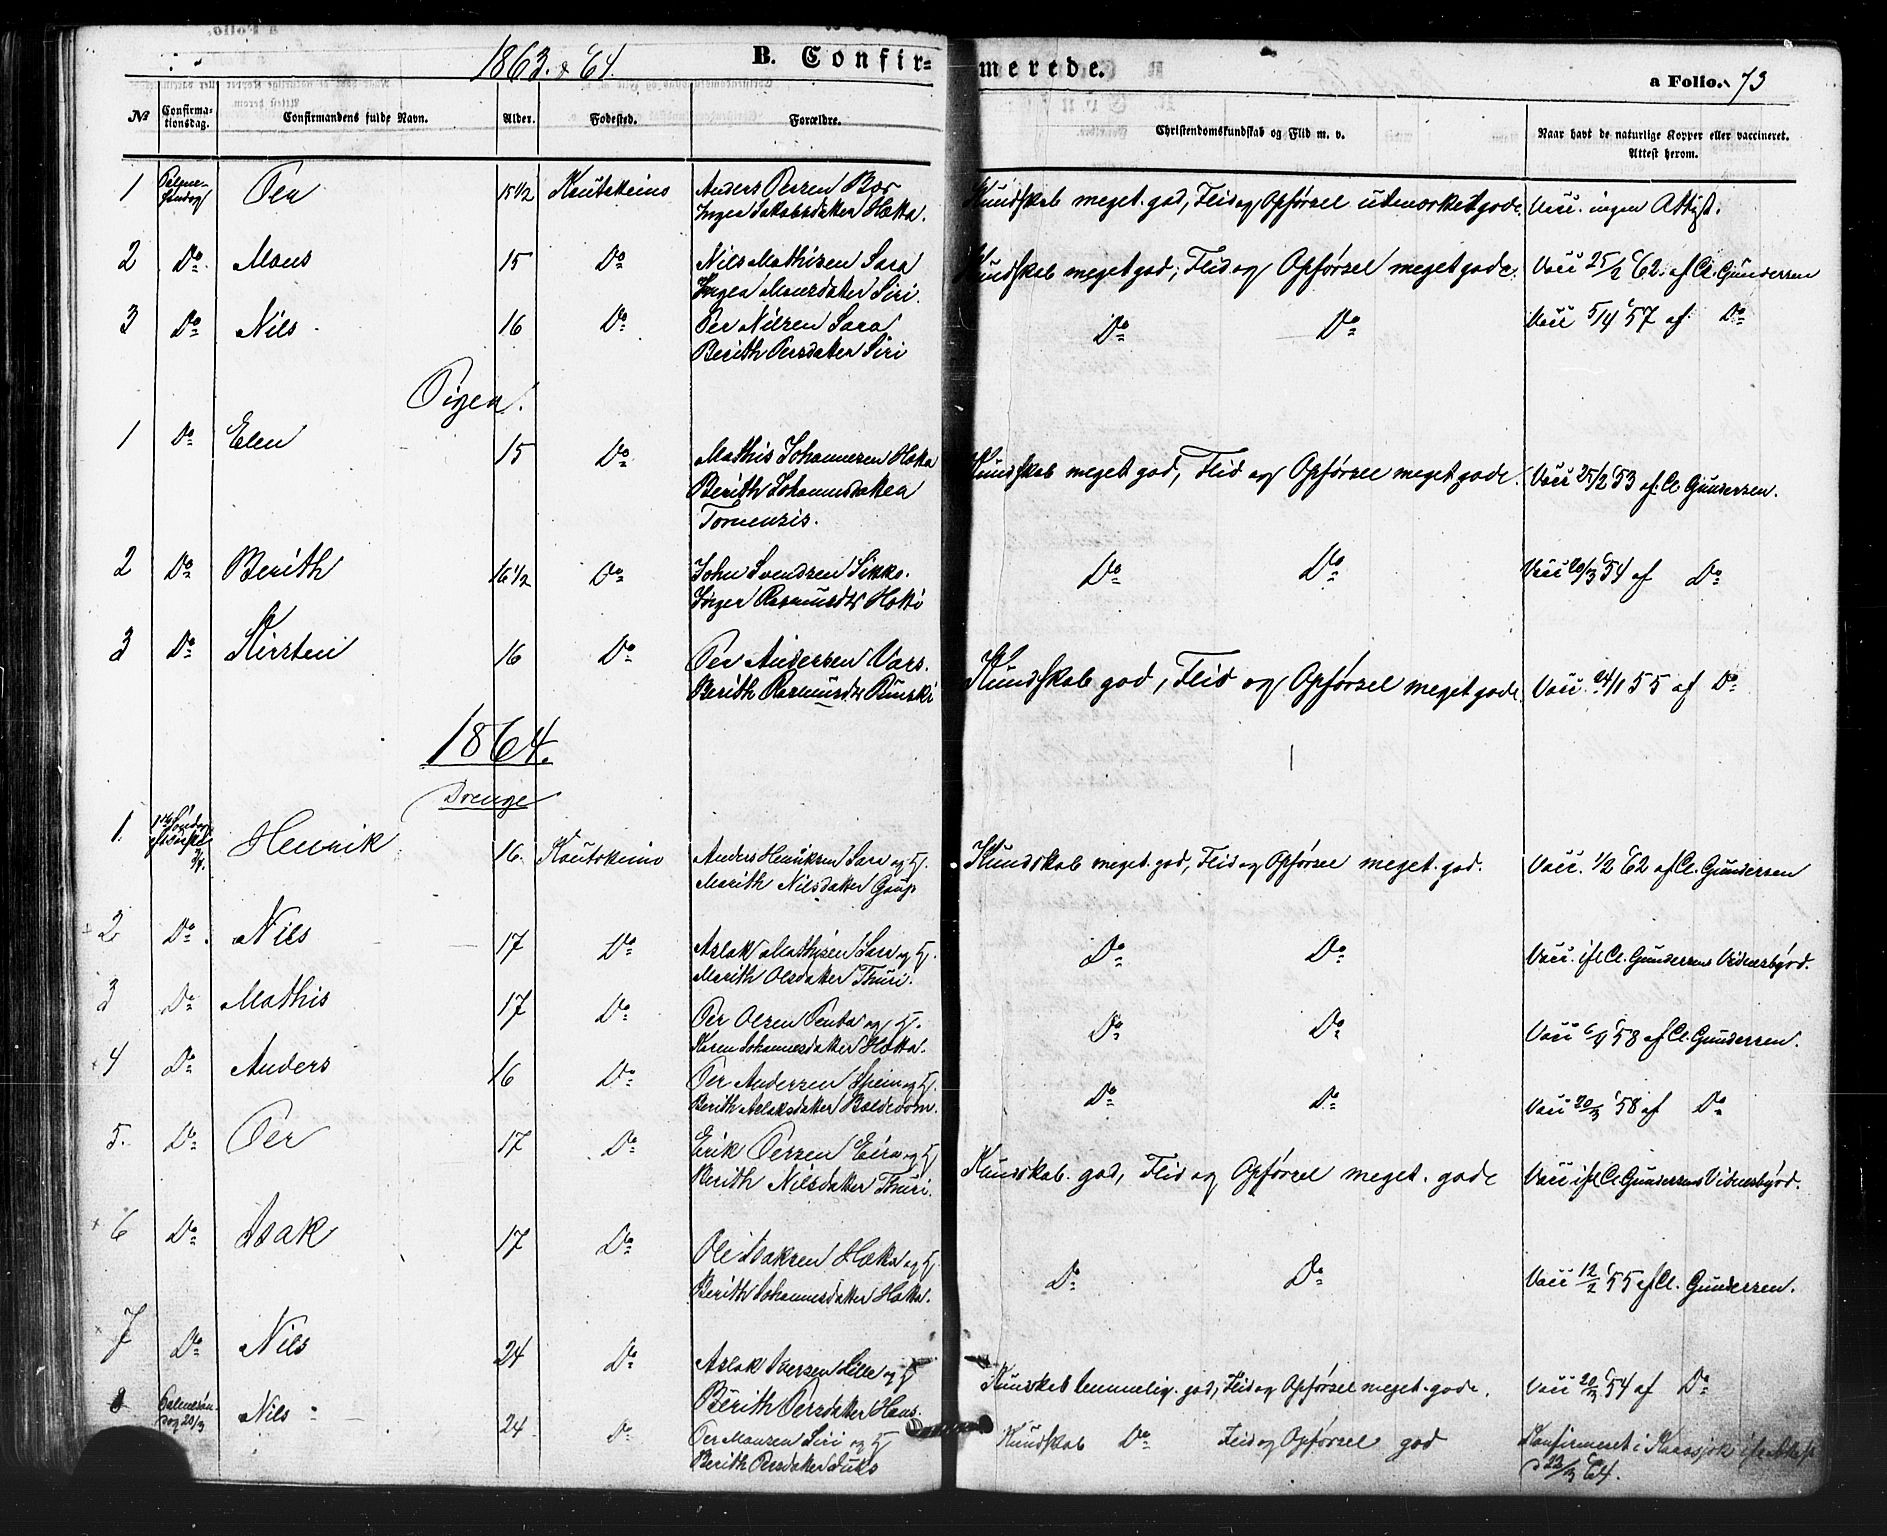 1863 & 64.
B. Confir-
merede.
a Folio. 73
No
Confirma-
tionsdag.
Confirmandens fulde Navn.
Alder.
Fødested.
Forældre.
Christendomskundskab og Flid m. v.
Naar havt de naturlige Kopper eller vaccineret.
Attest herom.
1 Palme-
søndag Per 15 1/2 Kautokeino Anders Persen Bær Kundskab meget god, Flid og Opførsel udmærket gode. Vacc. ingen Attest.
Inger Jakobsdatter Hætta.
2 Do Mons 15 Do Nils Mathisen Sara Kundskab meget god, Flid og Opførsel meget gode. Vacc 25/2 62 af Cl. Gundersen
Inger Monsdatter Siri.
3 Do Nils 16 Do Per Nilsen Sara Do Do Vacc 5/4 57 af Do
Berith Persdatter Siri
Piger.
1 Do Elen 15 Do Mathis Johannesen Hætta Kundskab meget god, Flid og Opførsel meget gode. Vacc 25/2 53 af Cl Gundersen.
Berith Johannesdatter
Tornensis.
2 Do Berith 16 1/2 Do John Svendsen Sikko. Do Do Vacc 20/3 54 af Do
Inger Rasmusdtr Hætta
3 Do Kirsten 16 Do Per Andersen Vars. Kundskab god, Flid og Opførsel meget gode. Vacc. 24/1 55 af Do
Berith Rasmusdtr Bunski
1864.
Drenge
1. 1ste Søndag
eft Paaske
3/4. Henrik 16. Kautokeino Anders Henriksen Sara og H. Kundskab meget god, Flid og Opførsel meget god. Vacc. 1/2 62 af Cl. Gundersen
Marith Nilsdatter Gaup
2 Do Nils 17 Do Aslak Mathisen Sara og H. Do Do Vacc. ifl Cl. Gundersens Vidnesbyrd.
Marith Olsdatter Thuri.
3 Do Mathis 17 Do Per Olsen Penta og H. Do Do Vacc 6/4 58 af Cl. Gundersen.
Karen Johannesdatter Hætta.
4 Do Anders 16 Do Per Andersen Spein og H. Do Do Vacc 20/3 58 af Do
Berith Aslaksdatter Bældedom.
5. Do Per 17 Do Erik Persen Eira og H Kundskab god, Flid og Opførsel meget gode Vacc ifl Cl Gundersens Vidnesbyrd.
Berith Nilsdatter Thuri.
6 Do Isak 17 Do Ole Isaksen Hætta og H. Do Do Vacc 12/2 55 af Cl. Gundersen.
Berith Johannesdatter Hætta.
7 Do Nils 24 Do Aslak Iversen Lille og H Kundskab temmelig god, Flid og Opførsel meget gode. Vacc 20/3 54 af Do
Berith Persdatter Hans.
8 Palmesøn-
dag 20/3 Nils 24 Do Per Monsen Siri og H Kundskab Do Flid og Opførsel god Konfirmeret i Karasjok ifl Attest
Berith Persdatter Juks d 22/3 64.